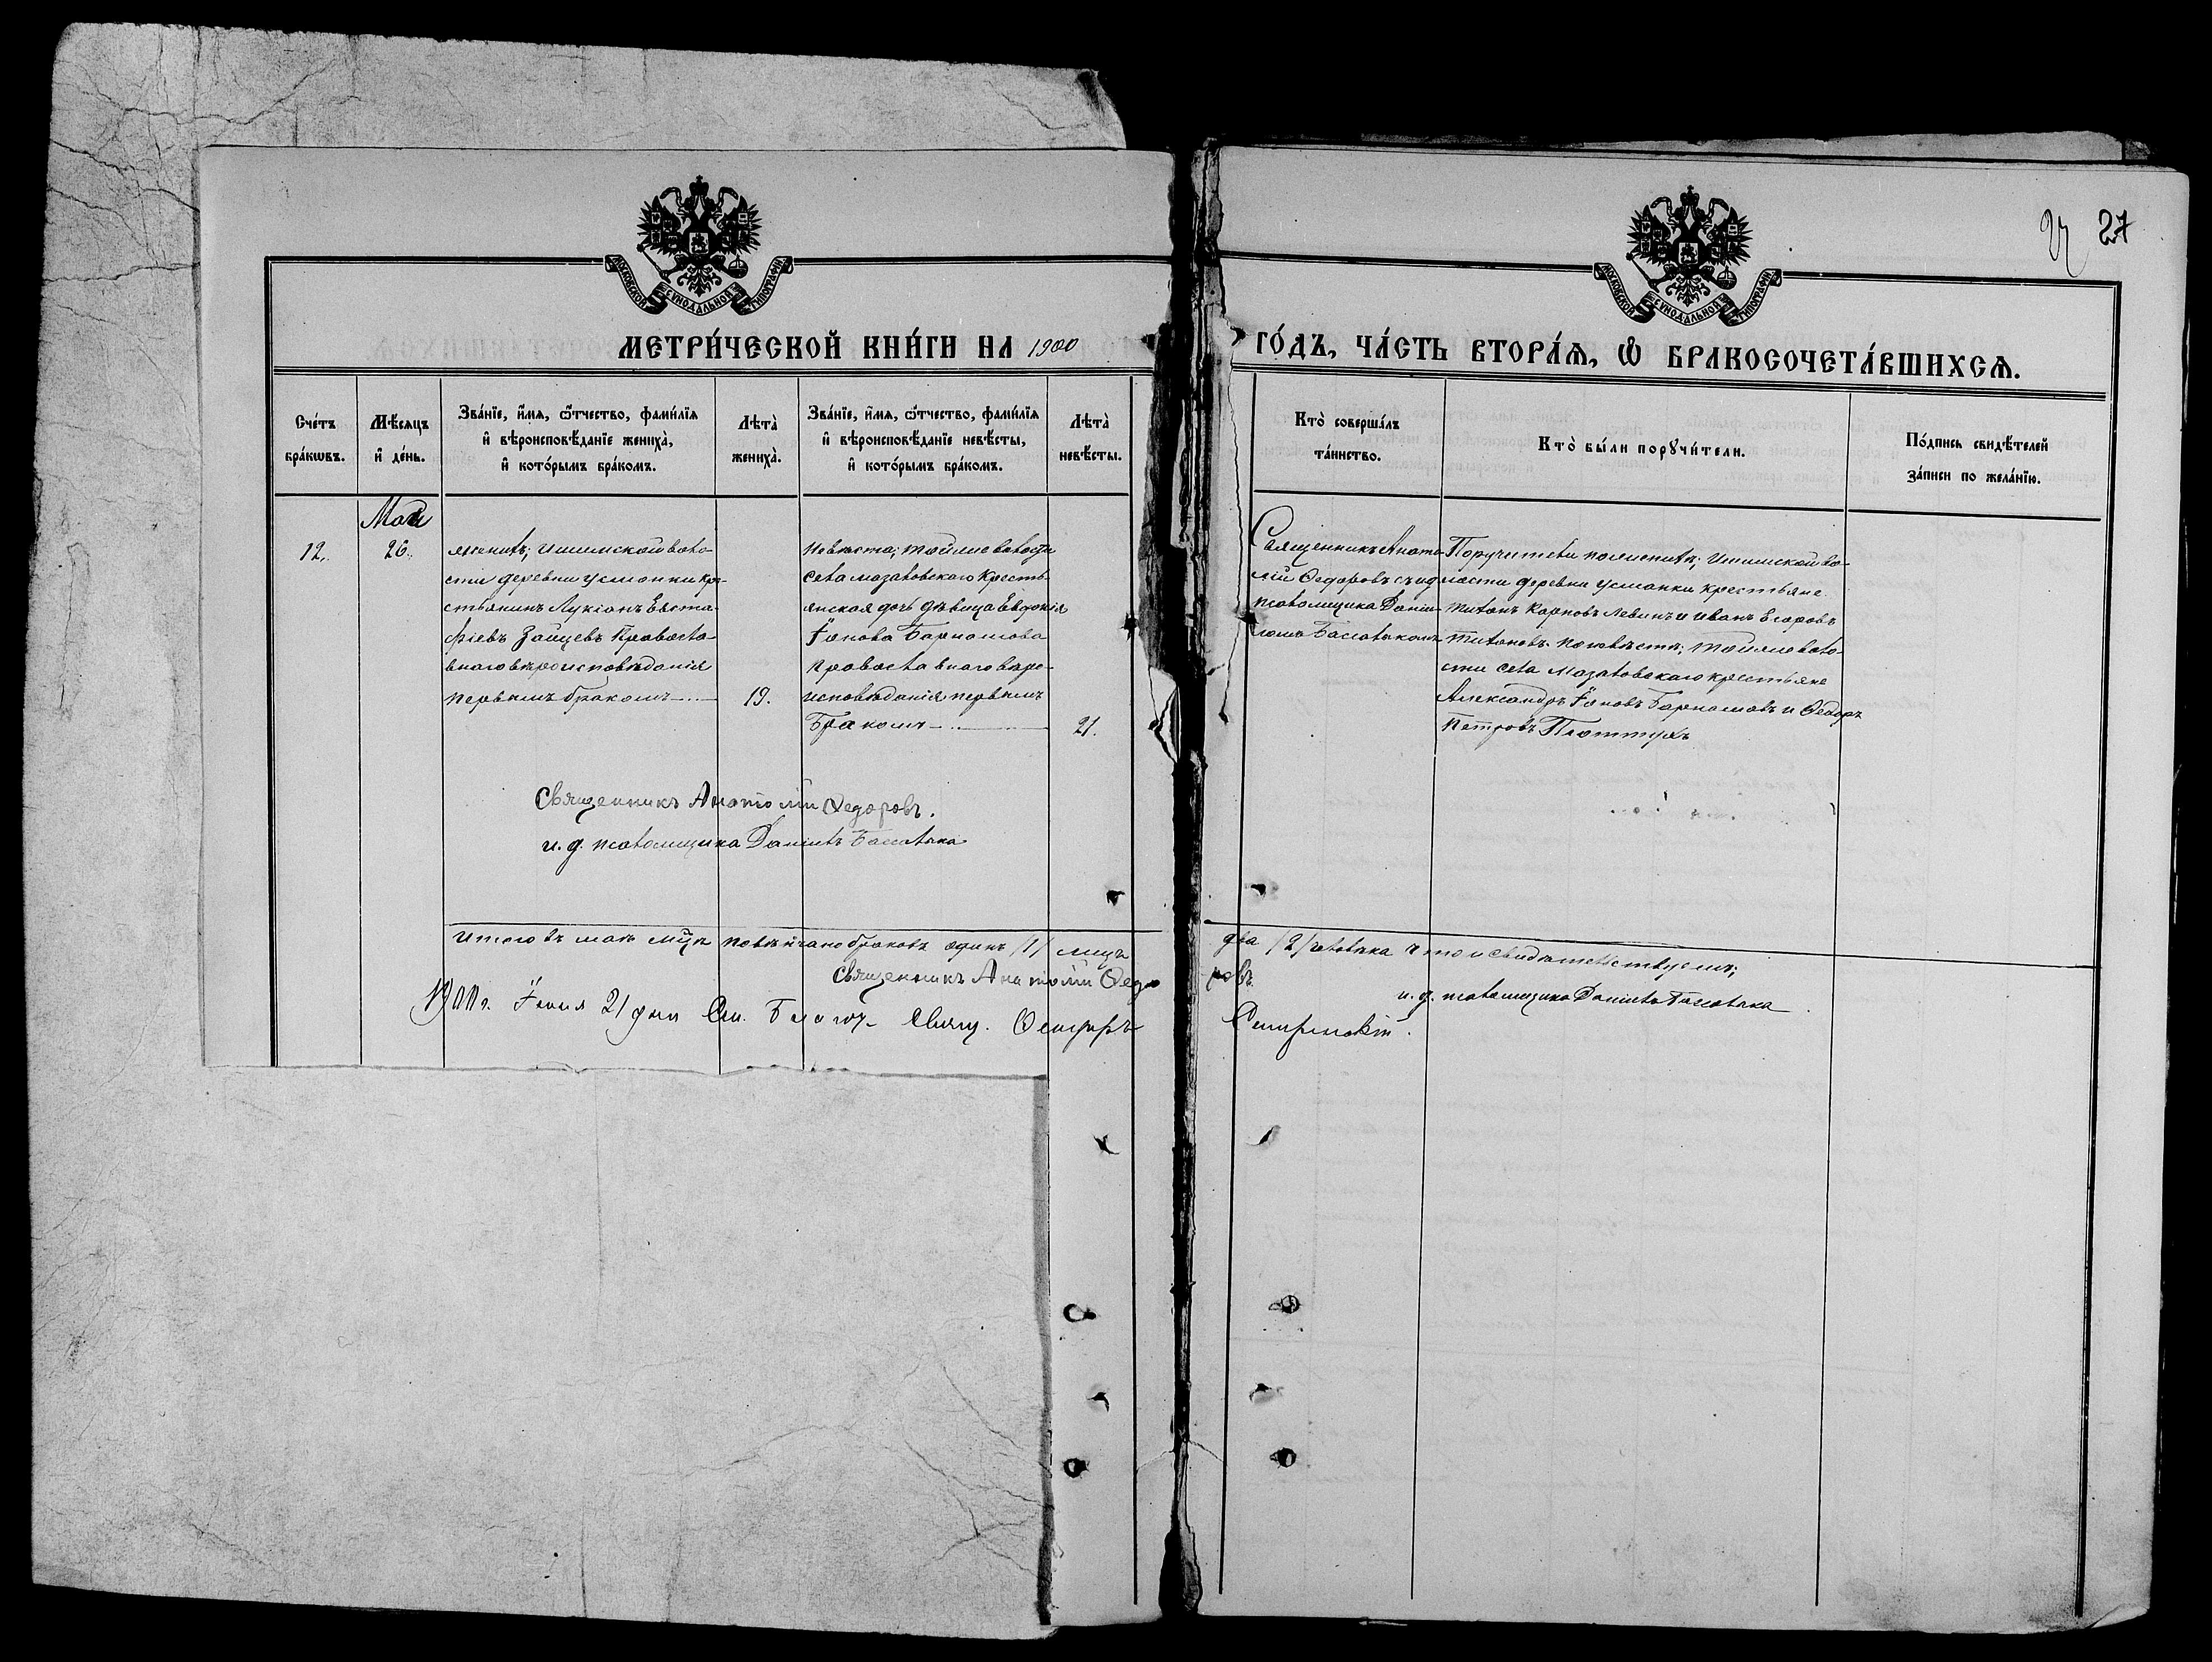 27
МОСКОВСКОЙ СѴНОДАЛЬНОЙ ТИПОГРАФІИ
МОСКОВСКОЙ СѴНОДАЛЬНОЙ ТИПОГРАФІИ
МЕТРИ́ЧЕСКОЙ КНИ́ГИ НА 1900 ГО́ДЪ, ЧА́СТЬ ВТОРА́Ѧ, Ѡ҆ БРАКОСОЧЕТА́ВШИХСѦ.
Сче́тъ
бра́кѡвъ.
Мѣ́сѧцъ
и҆ де́нь.
Зва́нїе, и҆́мѧ, ѻ҆́тчество, фами́лїѧ
и҆ вѣроисповѣ́данїе жениха̀,
и҆ кото́рымъ бра́комъ.
Лѣта̀
жениха̀.
Зва́нїе, и҆́мѧ, ѻ҆́тчество, фами́лїѧ
и҆ вѣроисповѣ́данїе невѣ́сты,
и҆ кото́рымъ бра́комъ.
Лѣта̀
невѣ́сты.
Кто̀ соверша́лъ
та́инство.
Кто̀ бы́ли порꙋчи́тели.
По́дпись свидѣ́телей
за́писи по жела́нїю.
Май
12.
26.
женихъ; Ишимской воло-
сти деревни Усманки кре-
стьянинъ Лукіанъ Евста-
фіевъ Зайцевъ Правосла-
внаго вѣроисповѣданія
первымъ бракомъ
19.
Невѣста; той же волости
села Мазаловскаго кресть-
янская дочь дѣвица Евдокія
Іонова Барнашова
православнаго вѣро-
исповѣданія первымъ
Бракомъ
21.
Священникъ Анато-
лій Федоровъ съ и д
псаломщика Даніи-
ломъ
Поручители по женихѣ; Ишимской во-
лости деревни Усманки крестьяне
Титонъ Карповъ Левинъ и Иванъ Егоровъ
Титоновъ. По невѣстѣ; той же воло-
сти села Мазаловскаго крестьяне
Александръ Іоновъ Барнашовъ и Федоръ
Петровъ
Священникъ Анатолій Федоровъ.
и. д. псаломщика Даніилъ
Итого въ маѣ м҃цѣ повѣнчано браковъ одинъ /1/ лицъ два /2/ человѣка что и свидѣтельствуемъ;
Священникъ Анатолій Федоровъ.
и. д. псаломщика Даніилъ
1900 г. Іюня 21 дня См. Благоч. Свящ.